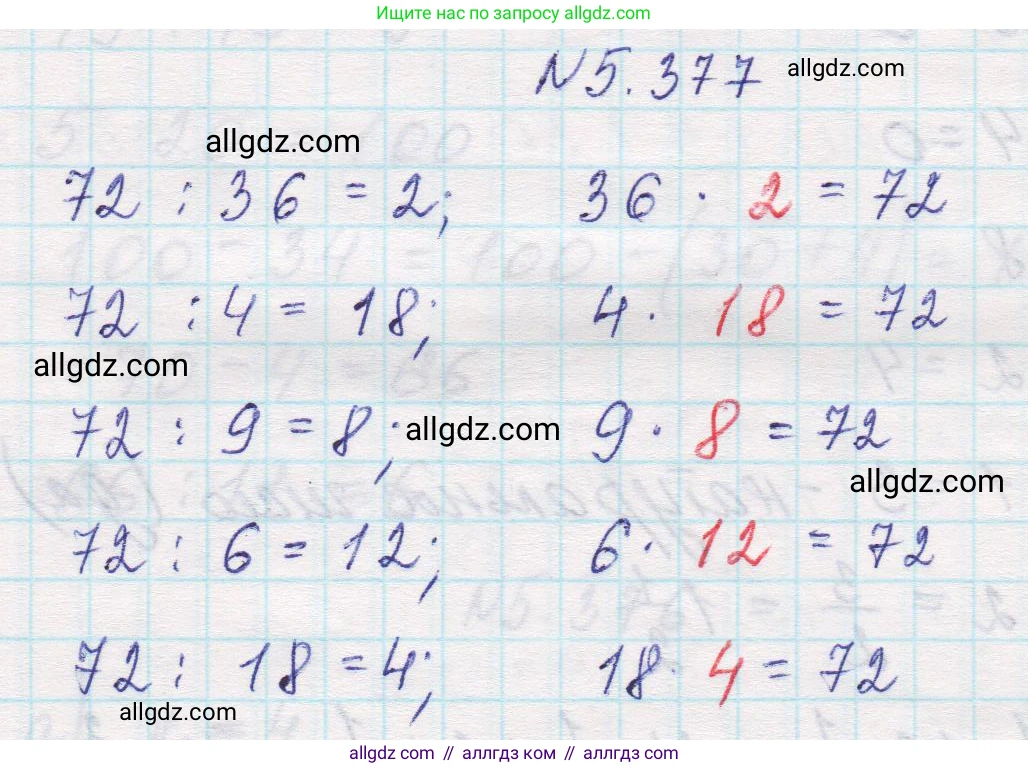 Ищите нас по запросу allgdz.com
N5.377 allgdz.com
allgdz.com
72 : 36 = 2; 36 · 2 = 72
72 : 4 = 18; 4 · 18 = 72
allgdz.com
72 : 9 = 8; allgdz.com 9 · 8 = 72
allgdz.com
72 : 6 = 12; 6 · 12 = 72
72 : 18 = 4; 18 · 4 = 72
allgdz.com
allgdz com // аллгдз ком // allgdz.com